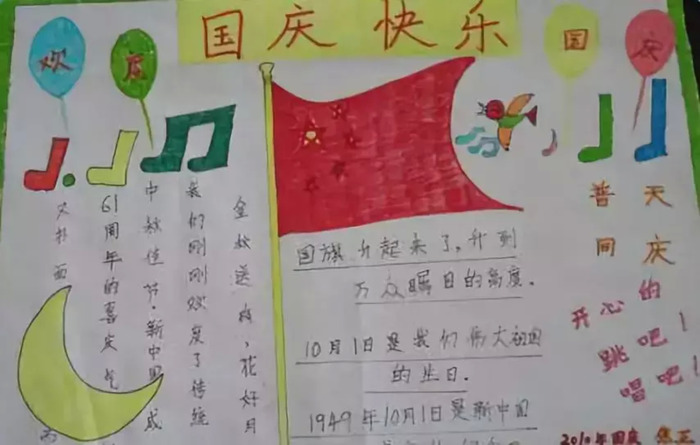 国庆快乐
欢度
国庆
金秋送爽,花好月
我们刚刚欢度了传统
中秋佳节·新中国成
61周年的喜庆气
又扑面
国旗升起来了,升到
万众瞩目的高度.
10月1日是我们伟大祖国
的生日.
1949年10月1日是新中国
普天
同庆
开心的
跳吧!
唱吧!
2010年国庆